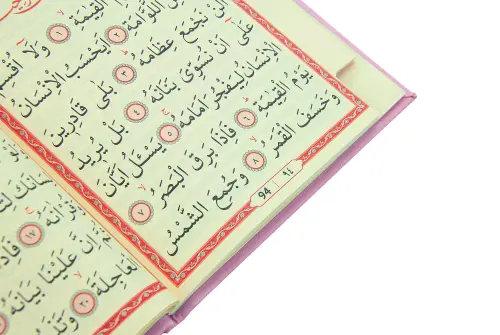 الْقِيٰمَةِ ١ وَلَٓا اُقْسِمُ
اللَّوَّامَةِ ٢ اَيَحْسَبُ الْاِنْسَانُ
لَنْ نَجْمَعَ عِظَامَهُ ٣ بَلٰى قَادِرٖينَ
عَلٰٓى اَنْ نُسَوِّيَ بَنَانَهُ ٤ بَلْ يُرٖيدُ
الْاِنْسَانُ لِيَفْجُرَ اَمَامَهُ ٥ يَسْـَٔلُ اَيَّانَ
يَوْمُ الْقِيٰمَةِ ٦ فَاِذَا بَرِقَ الْبَصَرُ ٧
وَخَسَفَ الْقَمَرُ ٨ وَجُمِعَ الشَّمْسُ
94 ٩٤
١٧
اِنَّ عَلَيْنَا بَيَانَهُ
٢٠